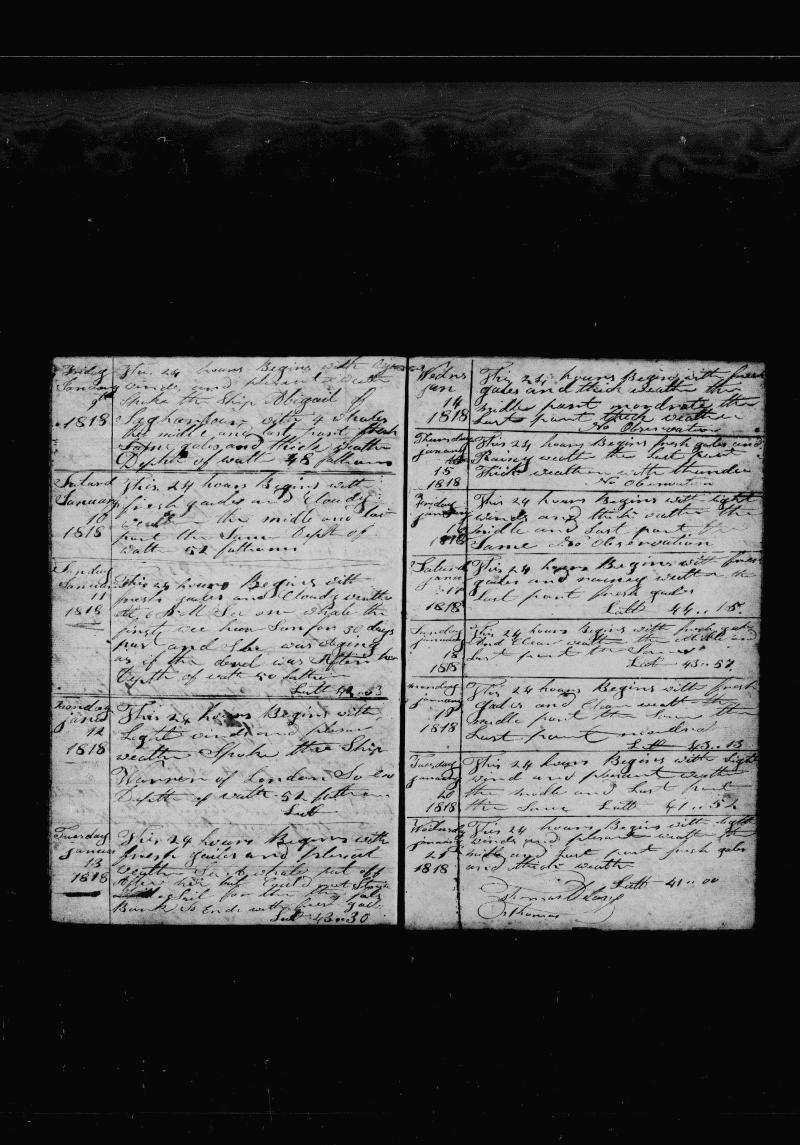 Friday
January
9th
1818
This 24 hours Begins with
winds and plesent weath
Spoke the Ship Abigail of
Sagharbour with 4 whales
the midle and last part fresh
gales and thick weather
Depth of watt 45 fathoms
Saturd
January
10
1818
This 24 hours Begins with
fresh gales and Cloudy
weather the midle and
part the Same Depth of
watt 52 fathoms
Sunday
January
11
1818
This 24 hours Begins with
fresh gales and Cloudy weathe
at 6 PM See one whale the
first we have Seen for 30 days
past and She was
as if the devel was After her
Depth of watt 50 fathom
Latt
Monday
janed
12
1818
This 24 hours Begins with
Light winds and plesen
weather Spoke the Ship
Warren of London So
Depth of watt 52 fathom
Latt
Tuesday
januar
13
1818
This 24 hours Begins with
fresh gales and plesent
weather whale put off
After her but Could not Strike
Sail for the
Bank So Ends with
Latt 43..30
Wedns
jan
14
1818
This 24 hours Begins with fresh
gales and thick weath the
midle part modrate the
Last part thick weather
No Observation
Thursday
january
15
1818
This 24 hours Begins fresh gales and
Rainey weath the last part
Thick weather with thunder
No Observation
Friday
january
1818
This 24 hours Begins with Light
winds and thick weather the
midle and Last part the
Same No Observation
Saturd
janua
17
1818
This 24 hours Begins with fresh
gales and rainey weath the
Last part fresh gales
Latt 44..15
Sunday
january
18
1818
This 24 hours Begins with fresh gales
And Clear weath the Middle and
Last part the Same
Latt 43..52
monday
january
19
1818
This 24 hours Begins with fresh
Gales and Clear weath the
middle part the Same the
Last part modrat
Latt 43..13
Tuesday
january
20
1818
This 24 hours Begins with Light
wind and plesent weather
the midle and Last part
the Same Latt 41..52
Wednsday
january
21
1818
This 24 hours Begins with light
winds and plesent weath the
midle and Last part fresh gales
and thick weath
Latt 41..00
Thomas
Thomas